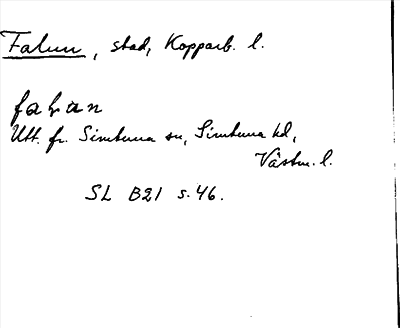 Falun, stad, Kopparb. l.
fahan
Utt. fr. Simtuna sn, Simtuna hd,
Västm. l.
SL B21 s. 46.